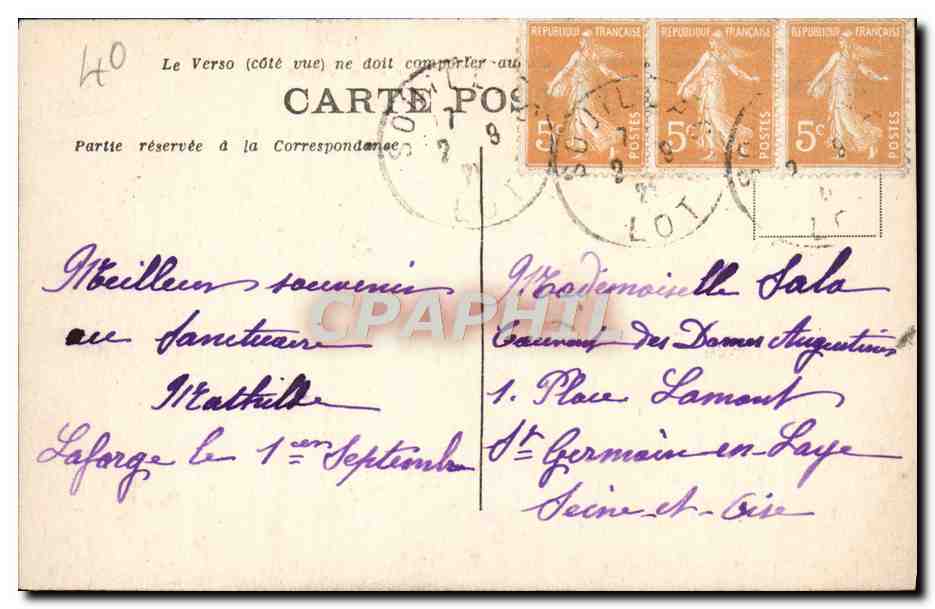 40
Le Verso (côté vue) ne doit comporter au
CARTE POS
Partie réservée à la Correspondance
RÉPUBLIQUE FRANÇAISE
5c POSTES
RÉPUBLIQUE FRANÇAISE
5c POSTES
RÉPUBLIQUE FRANÇAISE
5c POSTES
LOT
LOT
Meilleurs souvenirs
au Sanctuaire
Mathilde
Laforge le 1er Septembre
Mademoiselle Sala
des Dames Augustines
1. Place Lamant
St Germain-en-Laye
Seine-et-Oise
CPAPHIL